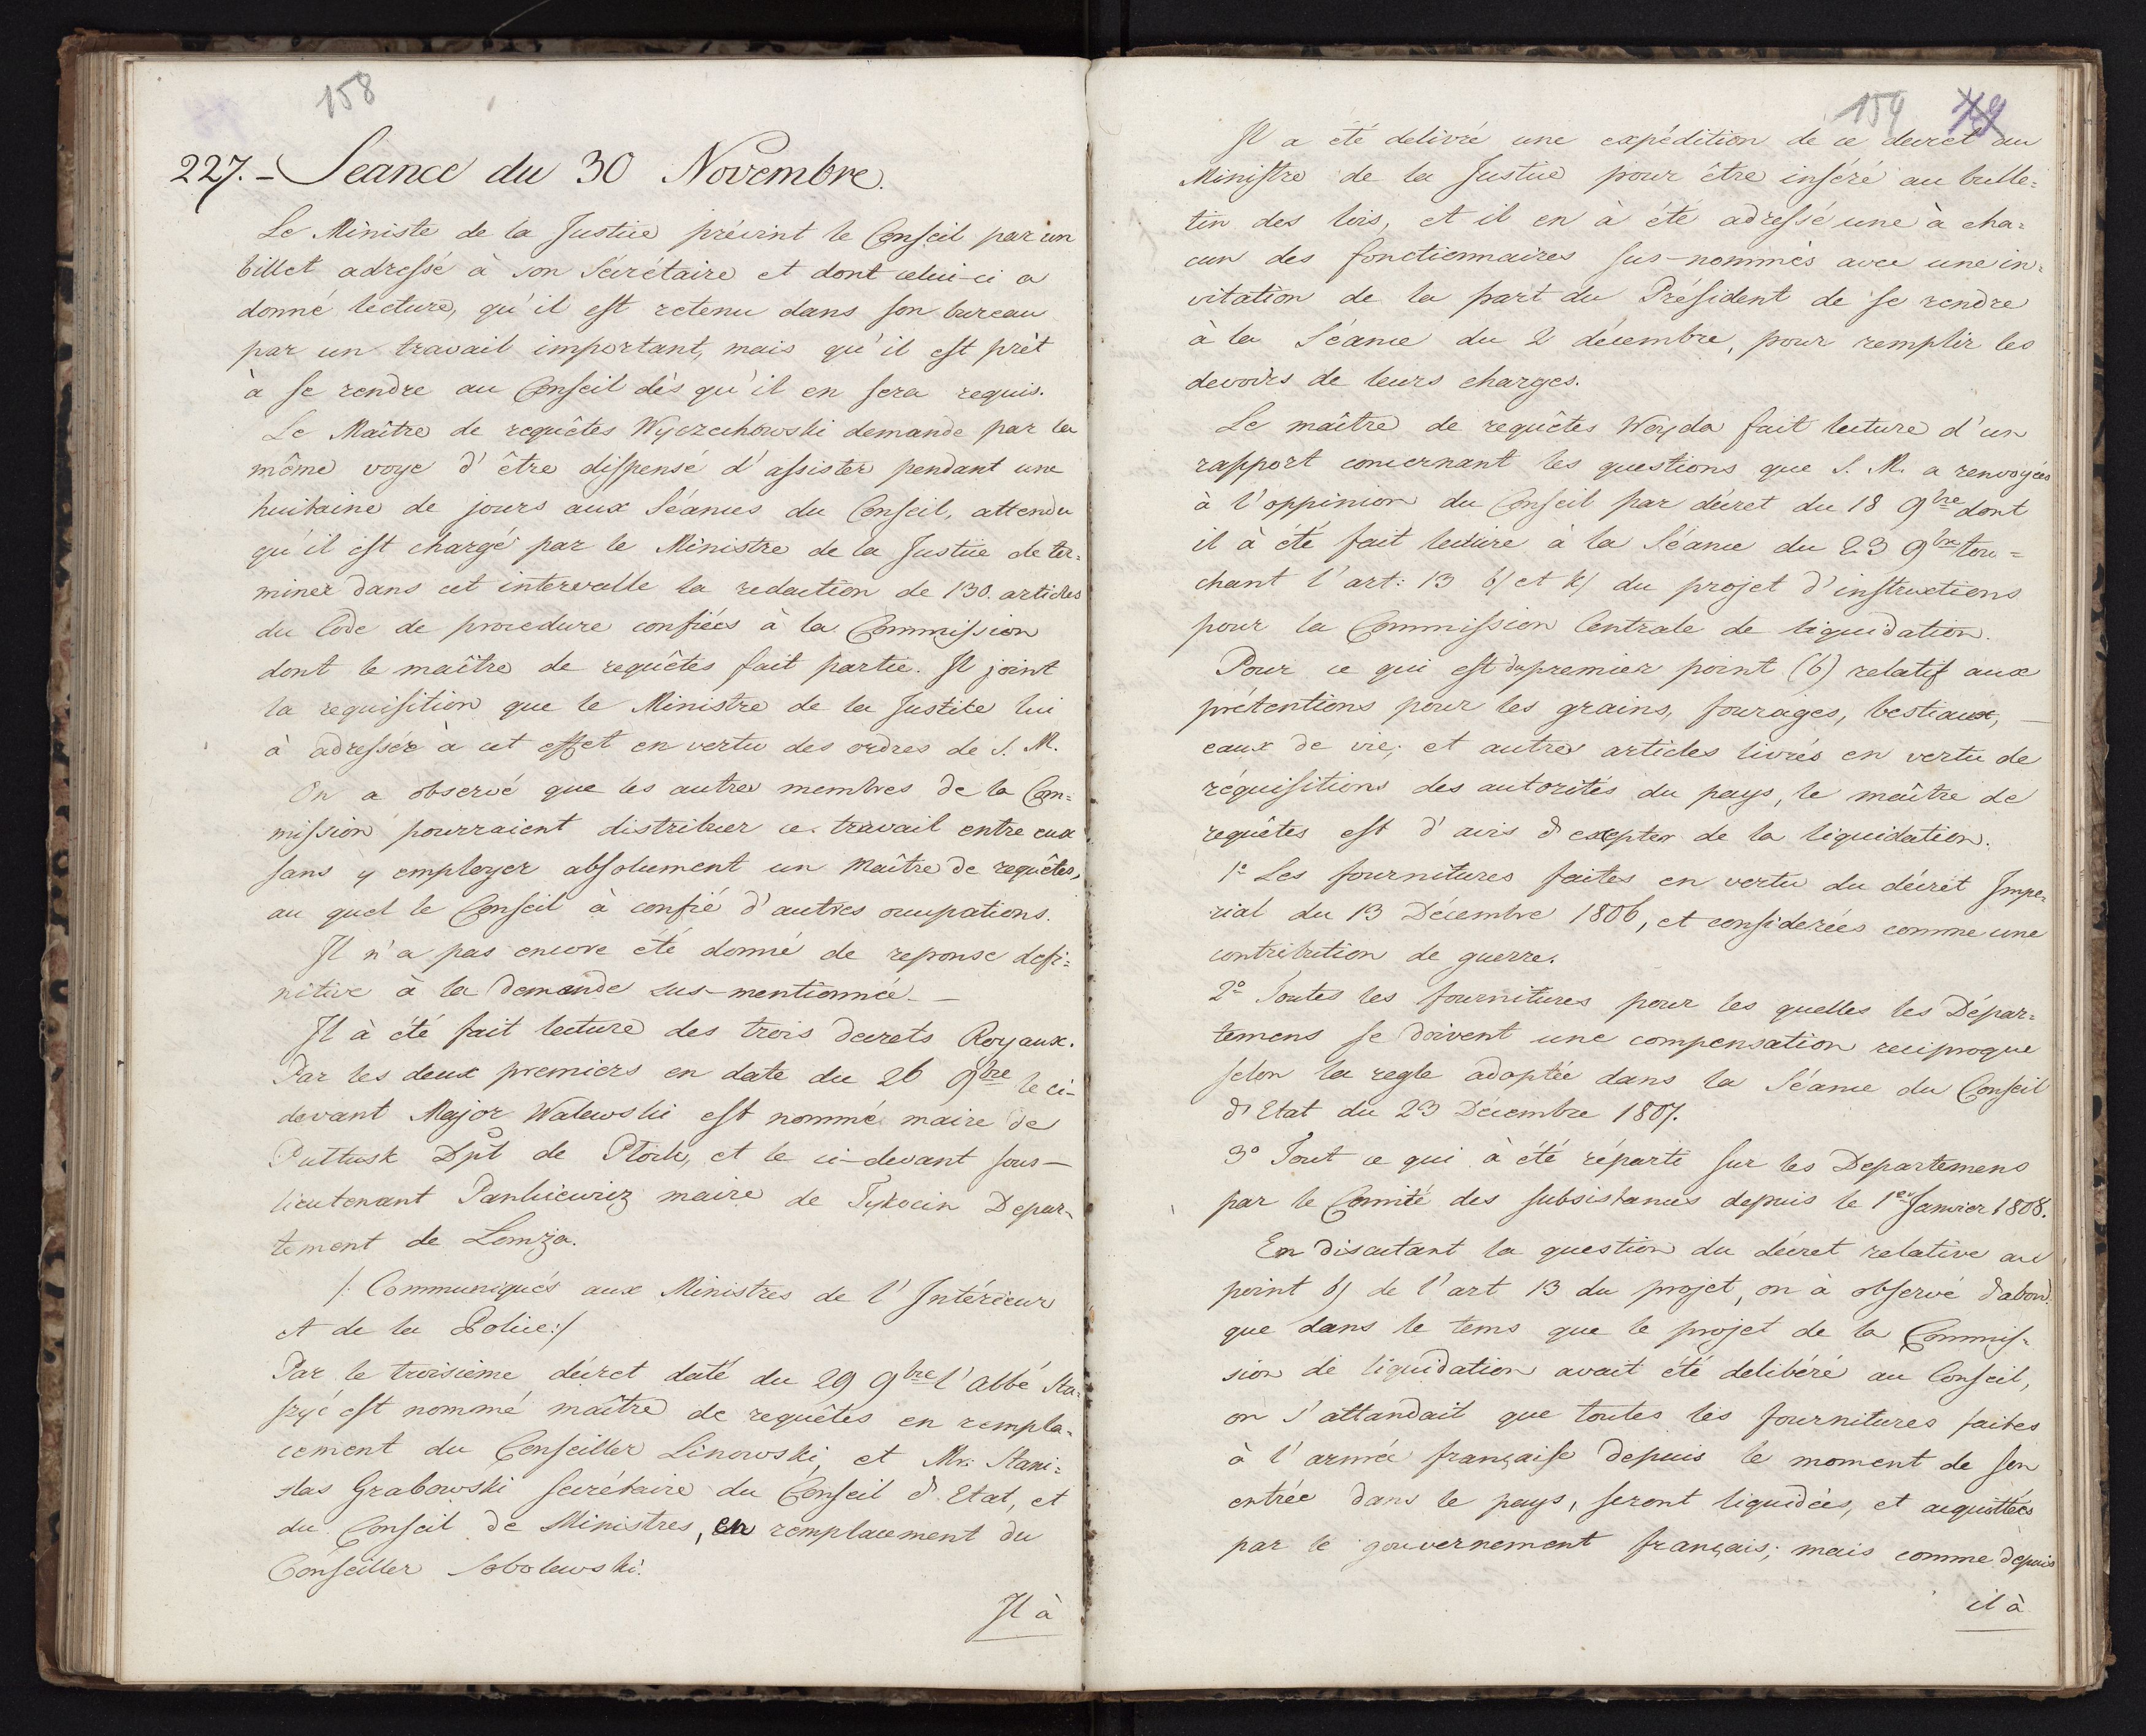 158
227. – Seance du 30 Novembre.
Le Ministe de la Justice prévint le Conseil par un
billet adressé à son Sécrétaire et dont celui-ci a
donné lecture, qu'il est retenu dans son bureau
par un travail important, mais qu'il est prêt
à se rendre au Conseil dès qu'il en sera requis.
Le Maître de requêtes Wyczechowski demande par la
même voye d'être dispensé d'assister pendant une
huitaine de jours aux Séances du Conseil, attendu
qu'il est chargé par le Ministre de la Justice de ter=
miner dans cet interevalle la redaction de 130. articles
du Code de procedure confiées à la Commission
dont le maître de requêtes fait partie. Il joint
la requisition que le Ministre de la Justice lui
à adresser à cet effet en vertu des ordres de S. M.
On a observé que les autres membres de la Com=
mission pourraient distribuer ce travail entre eux
sans y employer absolument un Maître de requêtes,
au quel le Conseil à confié d'autres occupations.
Il n'a pas encore été donné de reponse defi=
nitive à la demande sus-mentionnée. –
Il à été fait lecture des trois decrets Royaux.
Par les deux premiers en date du 26 9bre le ci-
devant Major Walewski est nommé maire de
Pultusk Dpt de Plock, et le ci-devant sous-
lieutenant Pankiewicz maire de Tykocin Depar-
tement de Lomza.
/: Communiqués aux Ministres de l'Intérieur
et de la Police:/
Par le troisieme décret daté du 29 9bre l'Abbé Sta=
szyć est nommé maître de requêtes en rempla=
cement du Conseiller Linowski, et Mr. Stani=
slas Grabowski secrétaire du Conseil d'Etat, et
du Conseil de Ministres, en remplacement du
Conseiller Sobolewski.
Il à
159 79
Il a été delivré une expédition de ce decret au
Ministre de la Justice pour être inséré au bulle=
tin des lois, et il en à été adressé une à cha=
cun des fonctionnaires sus-nommés avec une in=
vitation de la part du Président de se rendre
à la Séance du 2 décembre, pour remplir les
devoirs de leurs charges.
Le maître de requêtes Woyda fait lecture d'un
rapport concernant les questions que S. M. a renvoyées
à l'oppinion du Conseil par décret du 18 9bre dont
il à été fait lecture à la Séance du 23 9bre tou=
chant l'art: 13 b/ et k/ du projet d'instructions
pour la Commission Centrale de liquidation.
Pour ce qui est du premier point (b) relatif aux
prétentions pour les grains, fourages, bestiaux, –
eaux de vie, et autres articles livrés en vertu de
réquisitions des autorités du pays, le maître de
requêtes est d'avis d'excepter de la liquidation.
1o Les fournitures faites en vertu du décret Impe=
rial du 13 Décembre 1806, et considerées comme une
contribution de guerre.
2o Toutes les fournitures pour les quelles les Dépar=
temens se doivent une compensation reciproque
selon la regle adoptée dans la Séance du Conseil
d'Etat du 23 Décembre 1807.
3o Tout ce qui à été réparti sur les Departemens
par le Comité des subsistances depuis le 1er Janvier 1808.
En discutant la question du décret relative au
point b/ de l'art 13 du projet, on à observé d'abord
que dans le tems que le projet de la Commis=
sion de liquidation avait été delibéré au Conseil,
on s'attandait que toutes les fournitures faites
à l'armée française depuis le moment de son
entrée dans le pays, seront liquidées, et acquittées
par le gouvernement français; mais comme depuis
il à